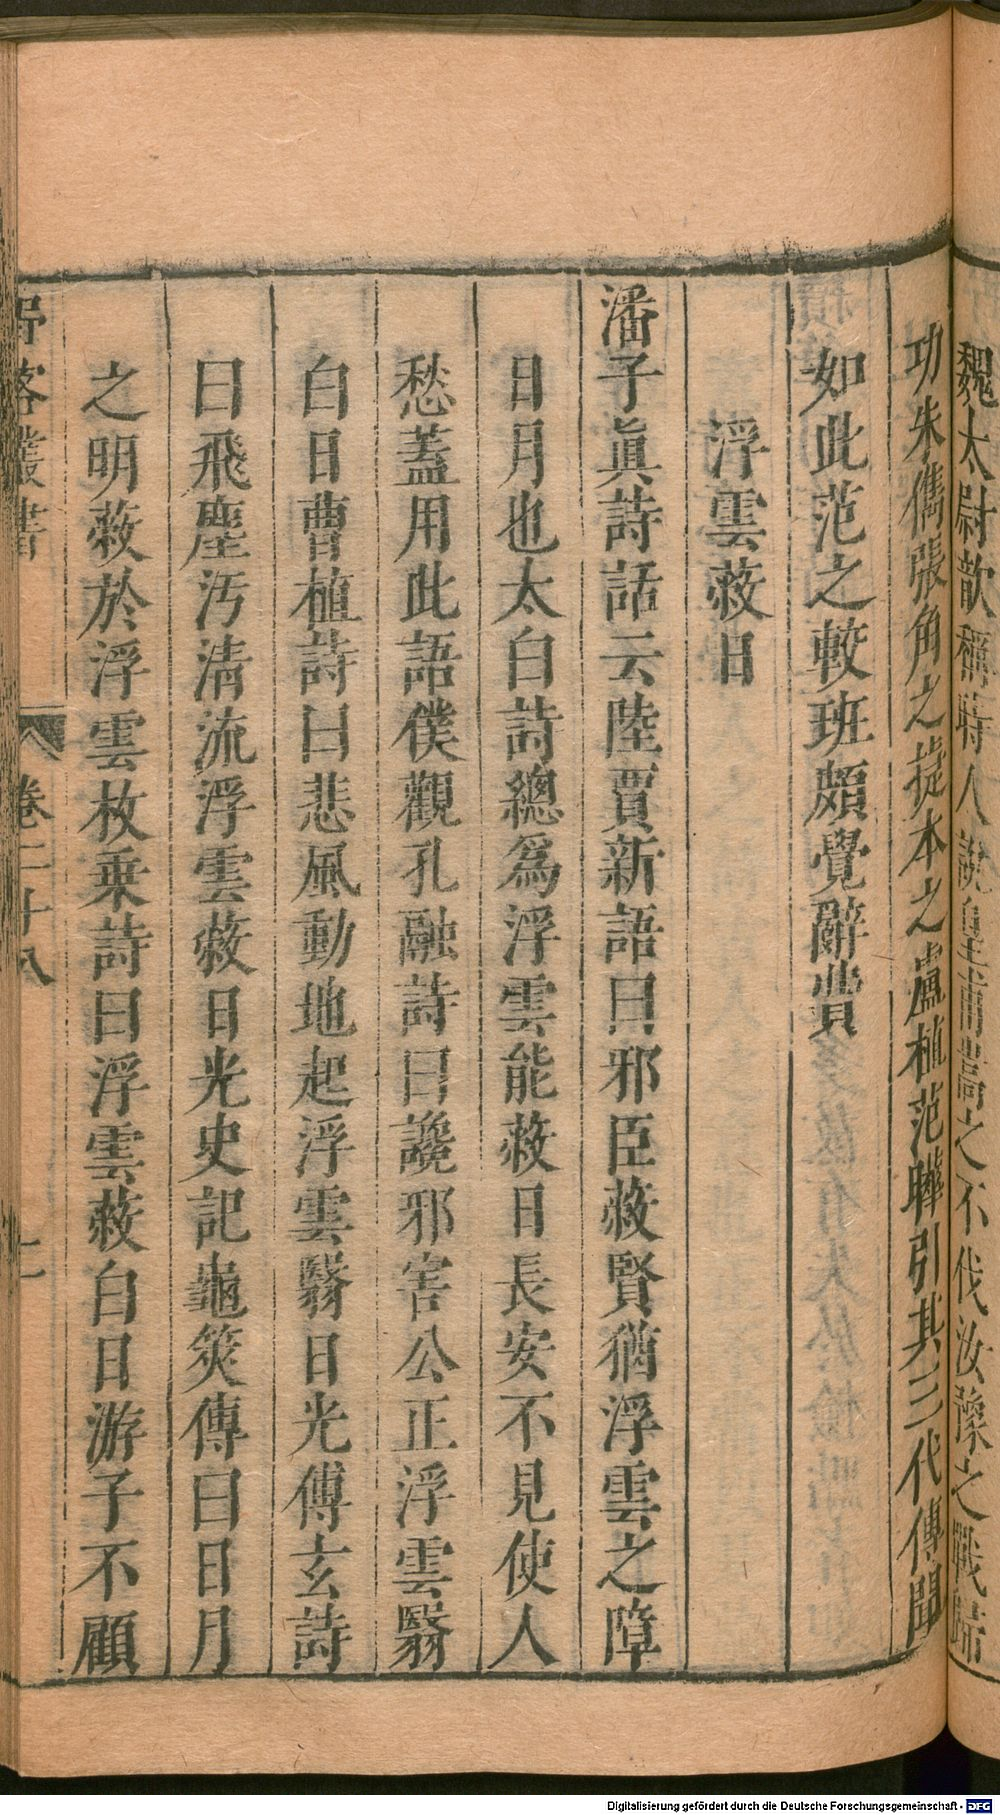 魏太尉歆稱時人說皇甫嵩之不伐汝豫之戰歸
功朱儁張角之捷本之盧植范曄引其三代傳聞
如此范之較班頗覺辭費
浮雲蔽日
潘子眞詩話云陸賈新語曰邪臣蔽賢猶浮雲之障
日月也太白詩總爲浮雲能蔽日長安不見使人
愁蓋用此語僕觀孔融詩曰讒邪害公正浮雲翳
白日曹植詩曰悲風動地起浮雲翳日光傅玄詩
曰飛塵汚清流浮雲蔽日光史記龜筴傳曰日月
之明蔽於浮雲枚乗詩曰浮雲蔽白日游子不顧
野客叢書
卷二十八
Digitalisierung gefördert durch die Deutsche Forschungsgemeinschaft - DFG